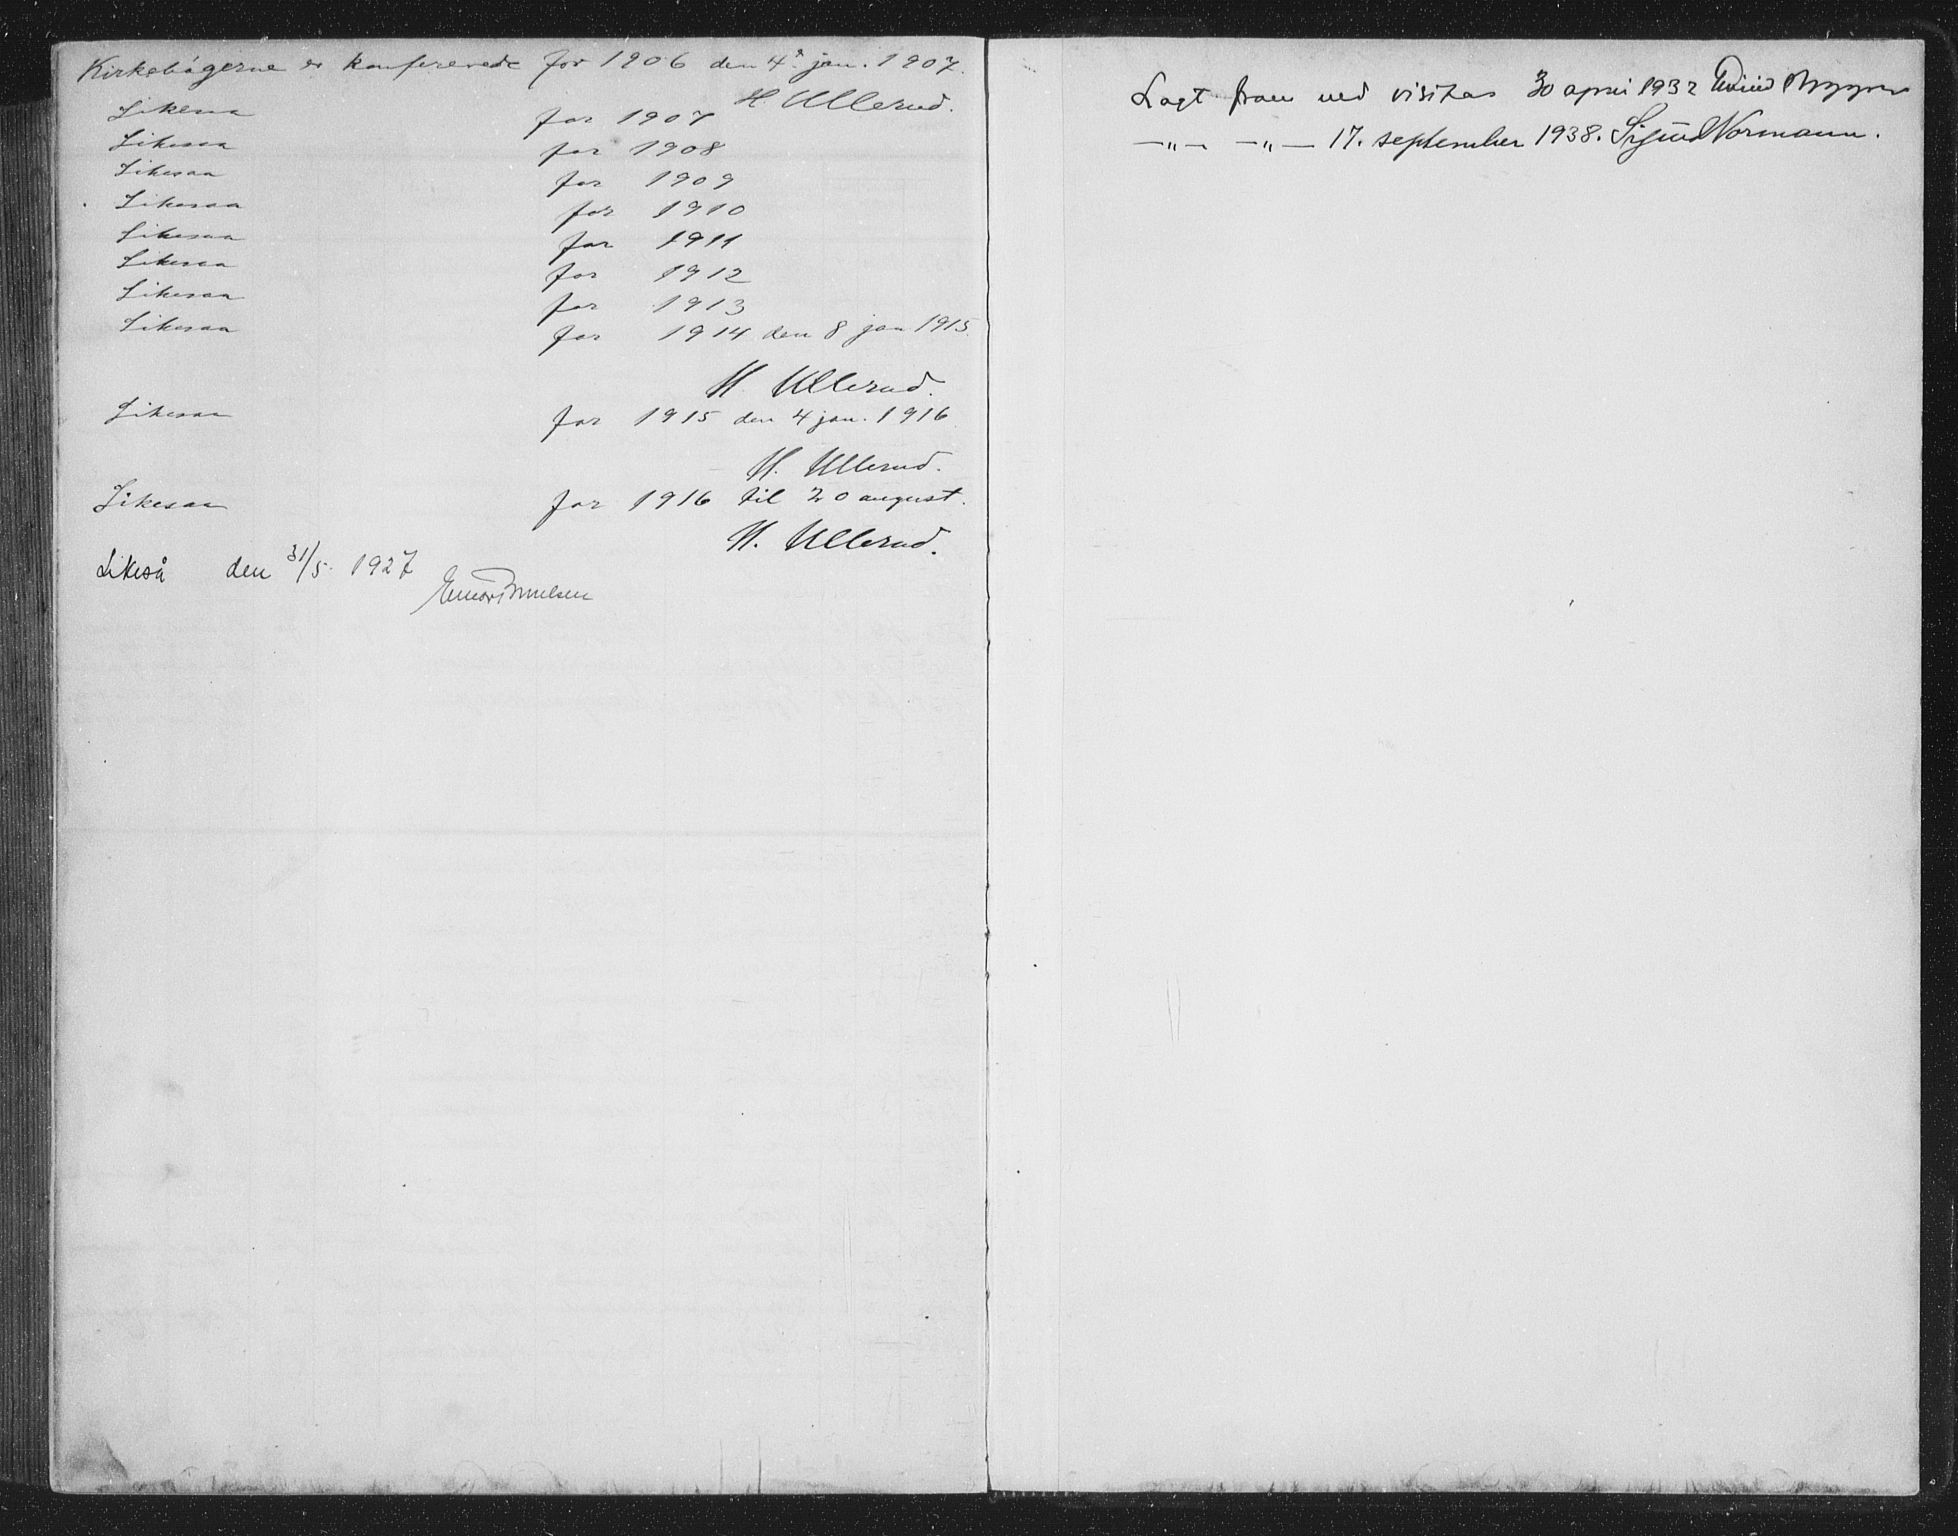 Kirkebøgerne er konfererede for 1906 den 4de jan. 1907.
H Ullerud.
Likesaa for 1907
Likesaa for 1908
Likesaa for 1909
Likesaa for 1910
Likesaa for 1911
Likesaa for 1912
Likesaa for 1913
Likesaa for 1914 den 8 jan 1915.
H. Ullerud.
Likesaa for 1915 den 4 jan. 1916.
H. Ullerud.
Likesaa for 1916 til 20 august.
H. Ullerud.
Likeså den 31/5. 1927
Lagt fram ved visitas 30 april 1932 Eivind
—„— —„— 17. september 1938. Sigurd Normann.